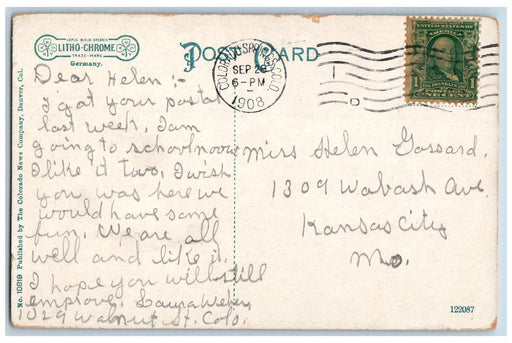 LEIPZIG BERLIN DRESDEN
LITHO-CHROME
TRADE-MARK
Germany.
POST CARD
COLORADO SPRINGS, COLO.
SEP 28
6-PM
1908
1
UNITED STATES OF AMERICA
FRANKLIN
Dear Helen:-
I got your postal
last week, I am
going to school now
I like it two, I wish
you was here we
would have some
fun. We are all
well and like it.
I hope you will still
emprove. Laura Weher,
1029 Walnut St. Colo.
Miss Helen Gossard.
1309 Wabash Ave.
Kansas City
Mo.
No. 10819 Published by The Colorado News Company, Denver, Col.
122087